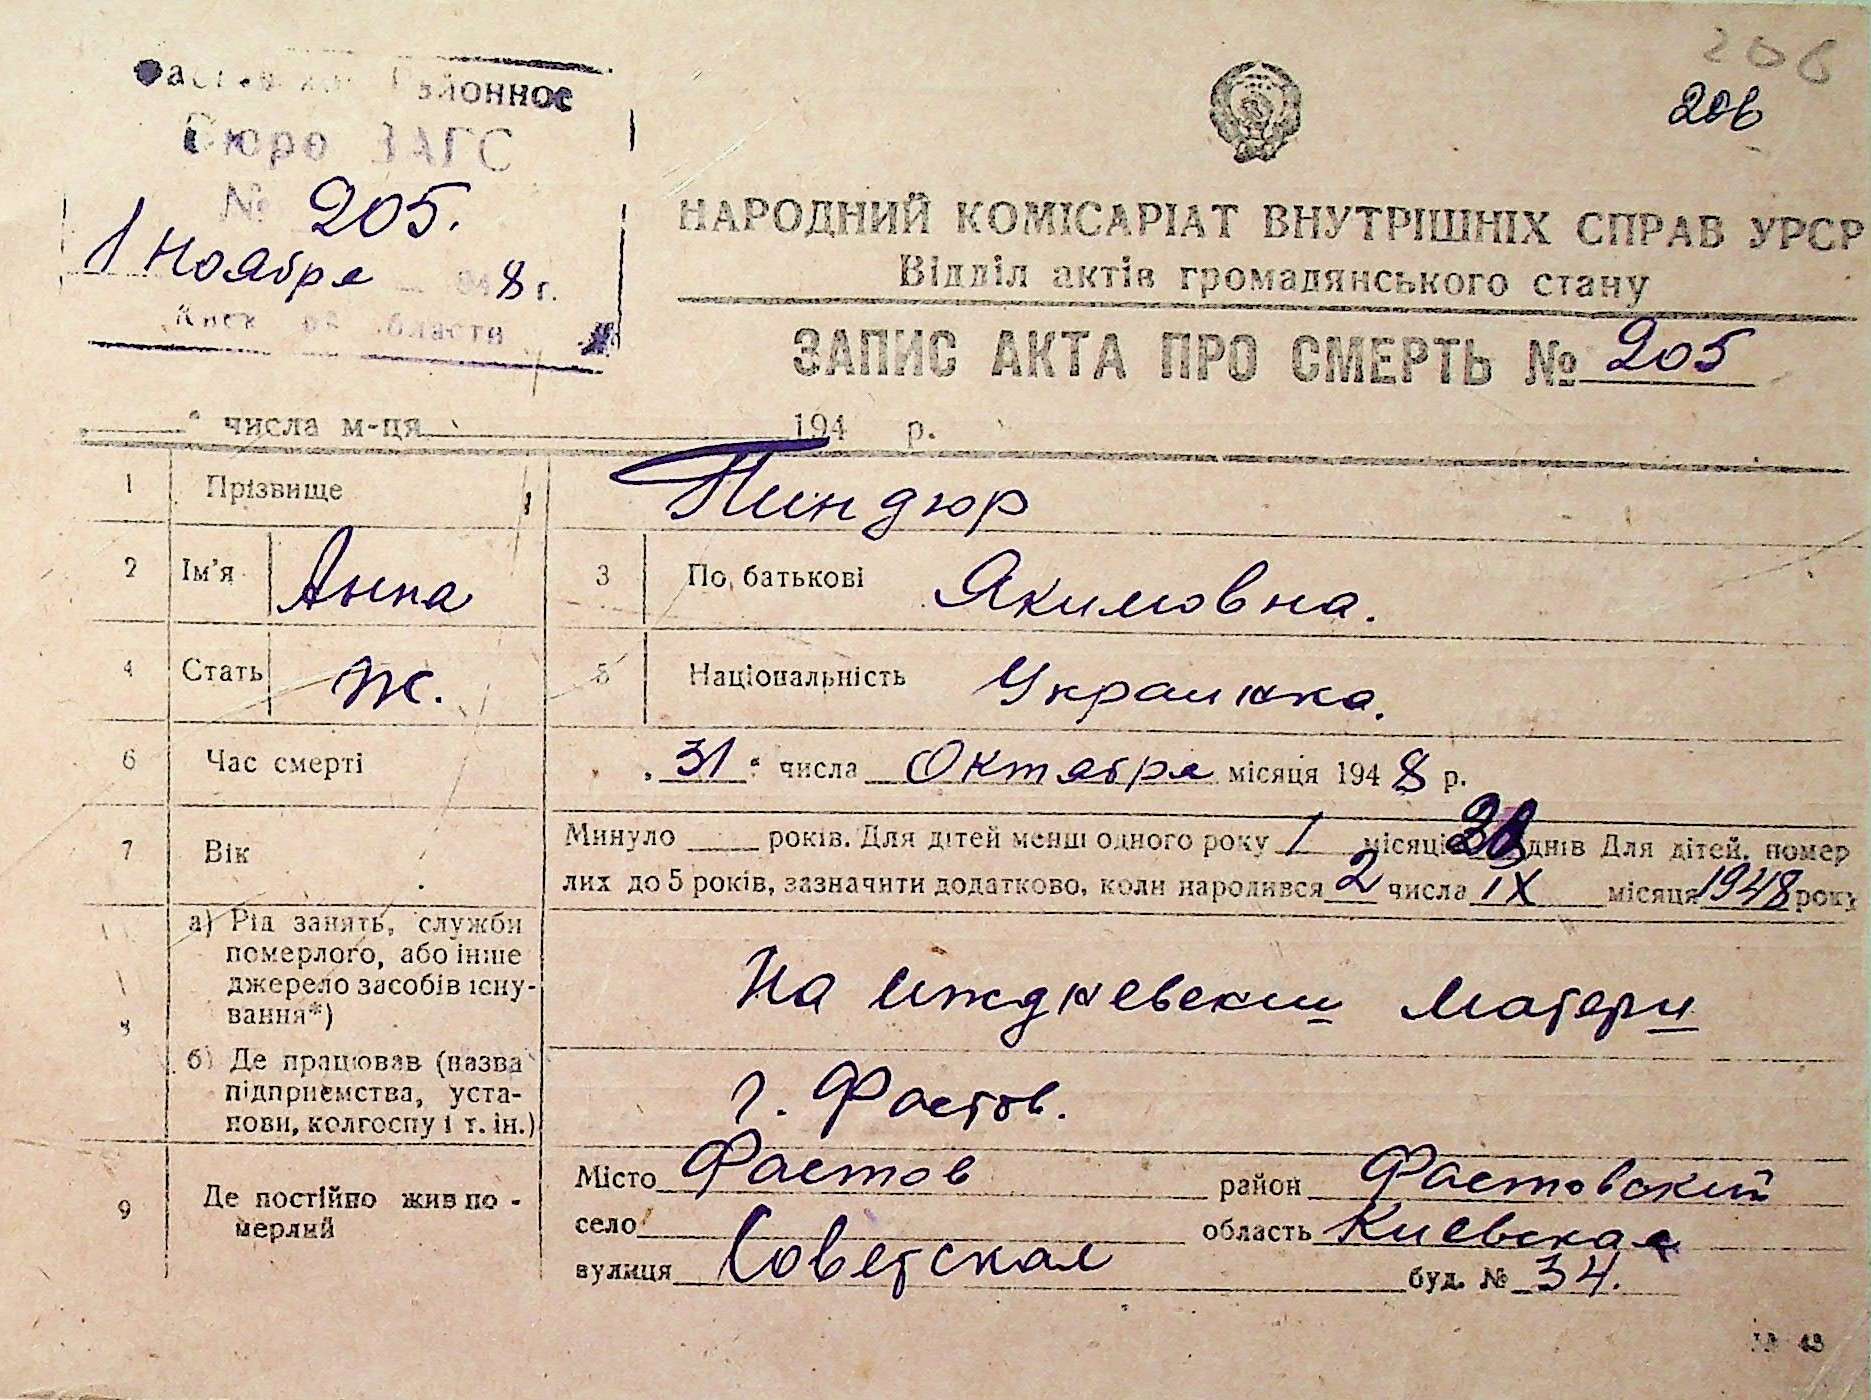 206
206
Районное
Бюро ЗАГС
№ 205.
1 Ноября 8 г.
области
НАРОДНИЙ КОМІСАРІАТ ВНУТРІШНІХ СПРАВ УРСР
Відділ актів громадянського стану
ЗАПИС АКТА ПРО СМЕРТЬ № 205
" числа м-ця 194 р.
1 Прізвище Пиндюр
2 Ім'я Анна 3 По батькові Якимовна.
4 Стать Ж. 5 Національність Украинка.
6 Час смерті „31" числа Октября місяця 1948 р.
7 Вік Минуло ____ років. Для дітей менш одного року 1 місяці днів Для дітей, помер
лих до 5 років, зазначити додатково, коли народився 2 числа IX місяця 1948 року
8 а) Рід занять, служби
померлого, або інше
джерело засобів існу-
вання*) На иждневеким матери
б) Де працював (назва
підприємства, уста-
нови, колгоспу і т. ін.) г. Фастов.
9 Де постійно жив по-
мерлий
Місто Фастов район Фастовский
село область Киевская
вулиця Советская буд. № 34.